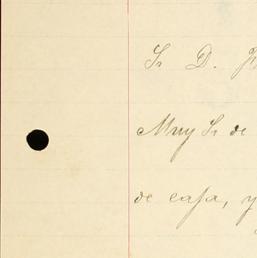 Sr D.
Muy Sr de
de casa, y